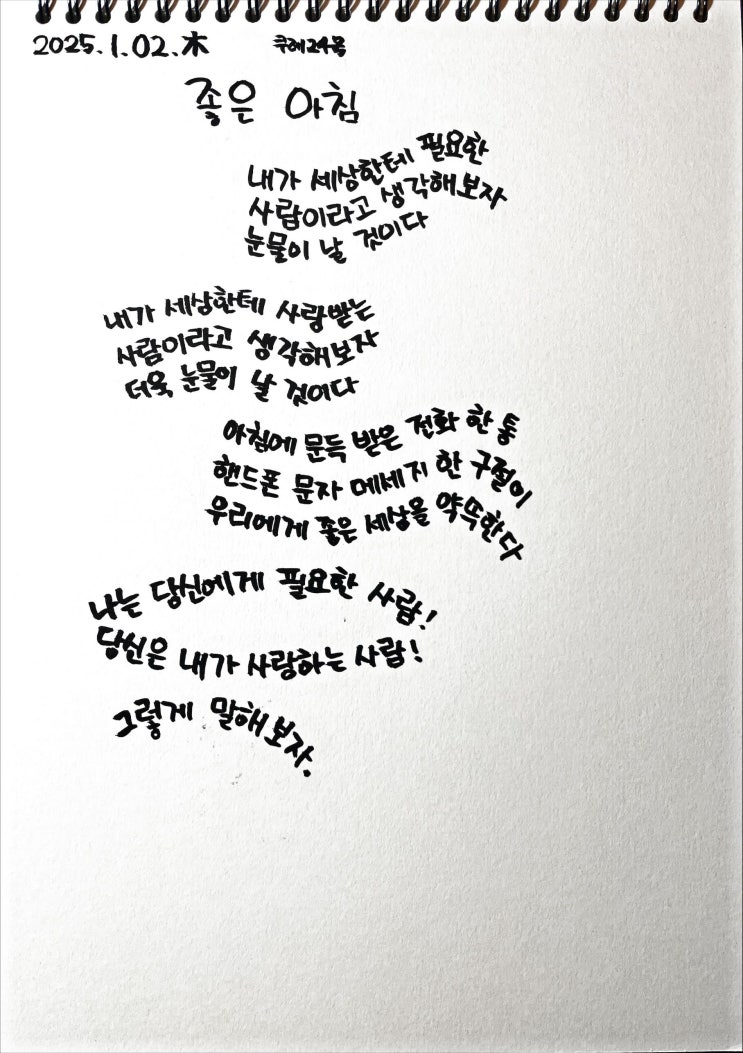 2025.1.02.木 쿠레24목
좋은 아침
내가 세상한테 필요한
사람이라고 생각해보자
눈물이 날 것이다
내가 세상한테 사랑받는
사람이라고 생각해보자
더욱 눈물이 날 것이다
아침에 문득 받은 전화 한 통
핸드폰 문자 메세지 한 구절이
우리에게 좋은 세상을 약뚝한다
나는 당신에게 필요한 사람!
당신은 내가 사랑하는 사람!
그렇게 말해보자.